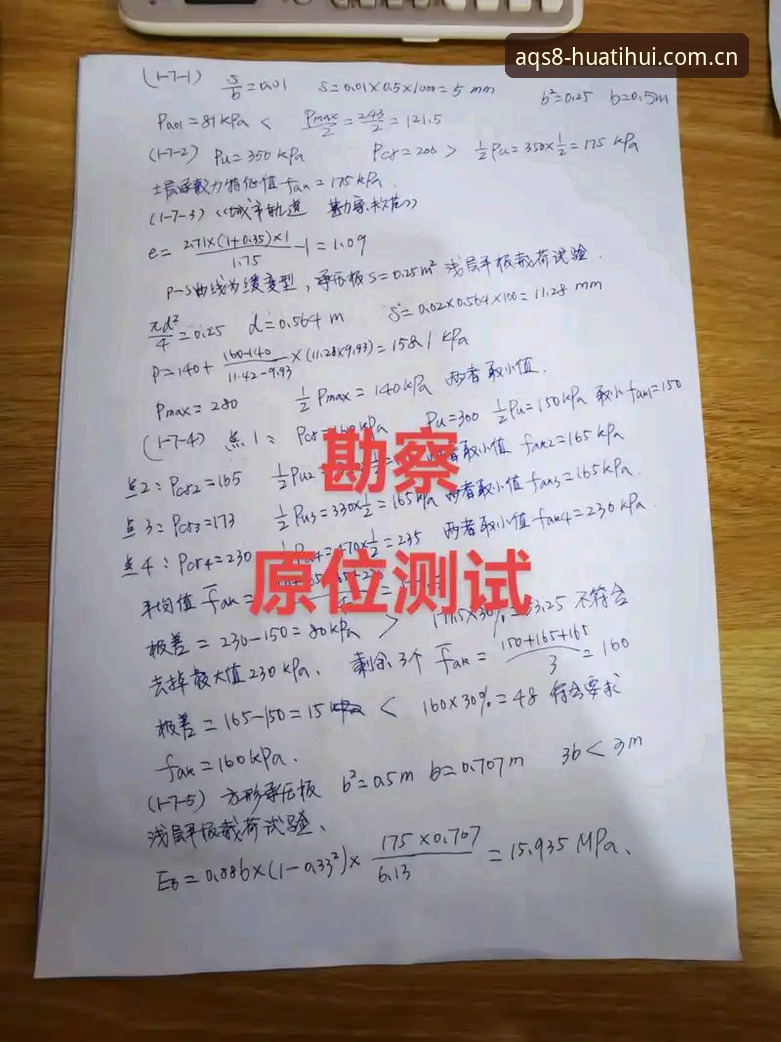 aqs8-huatihui.com.cn
(1-7-1) s/b=0.01 S=0.01×0.5×1000=5mm b²=0.25 b=0.5m
P0.01=81kPa < Pmax/2=243/2=121.5
(1-7-2) Pu=350kPa Pcr=200 > 1/2Pu=350×1/2=175kPa
土层承载力特征值fak=175kPa.
(1-7-3)《城市轨道 勘察规范》
e=2.71×(1+0.35)×1/1.75-1=1.09
P-s曲线为缓变型,承压板S=0.25m²浅层平板载荷试验.
πd²/4=0.25 d=0.564m S=0.02×0.564×100=11.28mm
P=140+160-140/11.42-9.93×(11.28×9.93)=158.1kPa
Pmax=280 1/2Pmax=140kPa 两者取小值.
(1-7-4) 点1: Pcr=160kPa Pu=300 1/2Pu=150kPa 取小fak1=150
勘察
点2:Pcr2=165 1/2Pu2= 两者取小值 fak2=165kPa
点3:Pcr3=173 1/2Pu3=330×1/2=165kPa 两者取小值fak3=165kPa.
点4:Pcr4=230 1/2Pu4=470×1/2=235 两者取小值fak4=230kPa.
原位测试
平均值fak=
极差=230-150=80kPa > 177.5×30%=53.25不符合
去掉最大值230kPa、剩余3个 fak=150+165+165/3=160
极差=165-150=15kPa < 160×30%=48 符合要求
fak=160kPa.
(1-7-5) 方形承压板 b²=0.5m b=0.707m 3b<3m
浅层平板载荷试验、
E0=0.886×(1-0.33²)×175×0.707/6.13=15.935MPa、